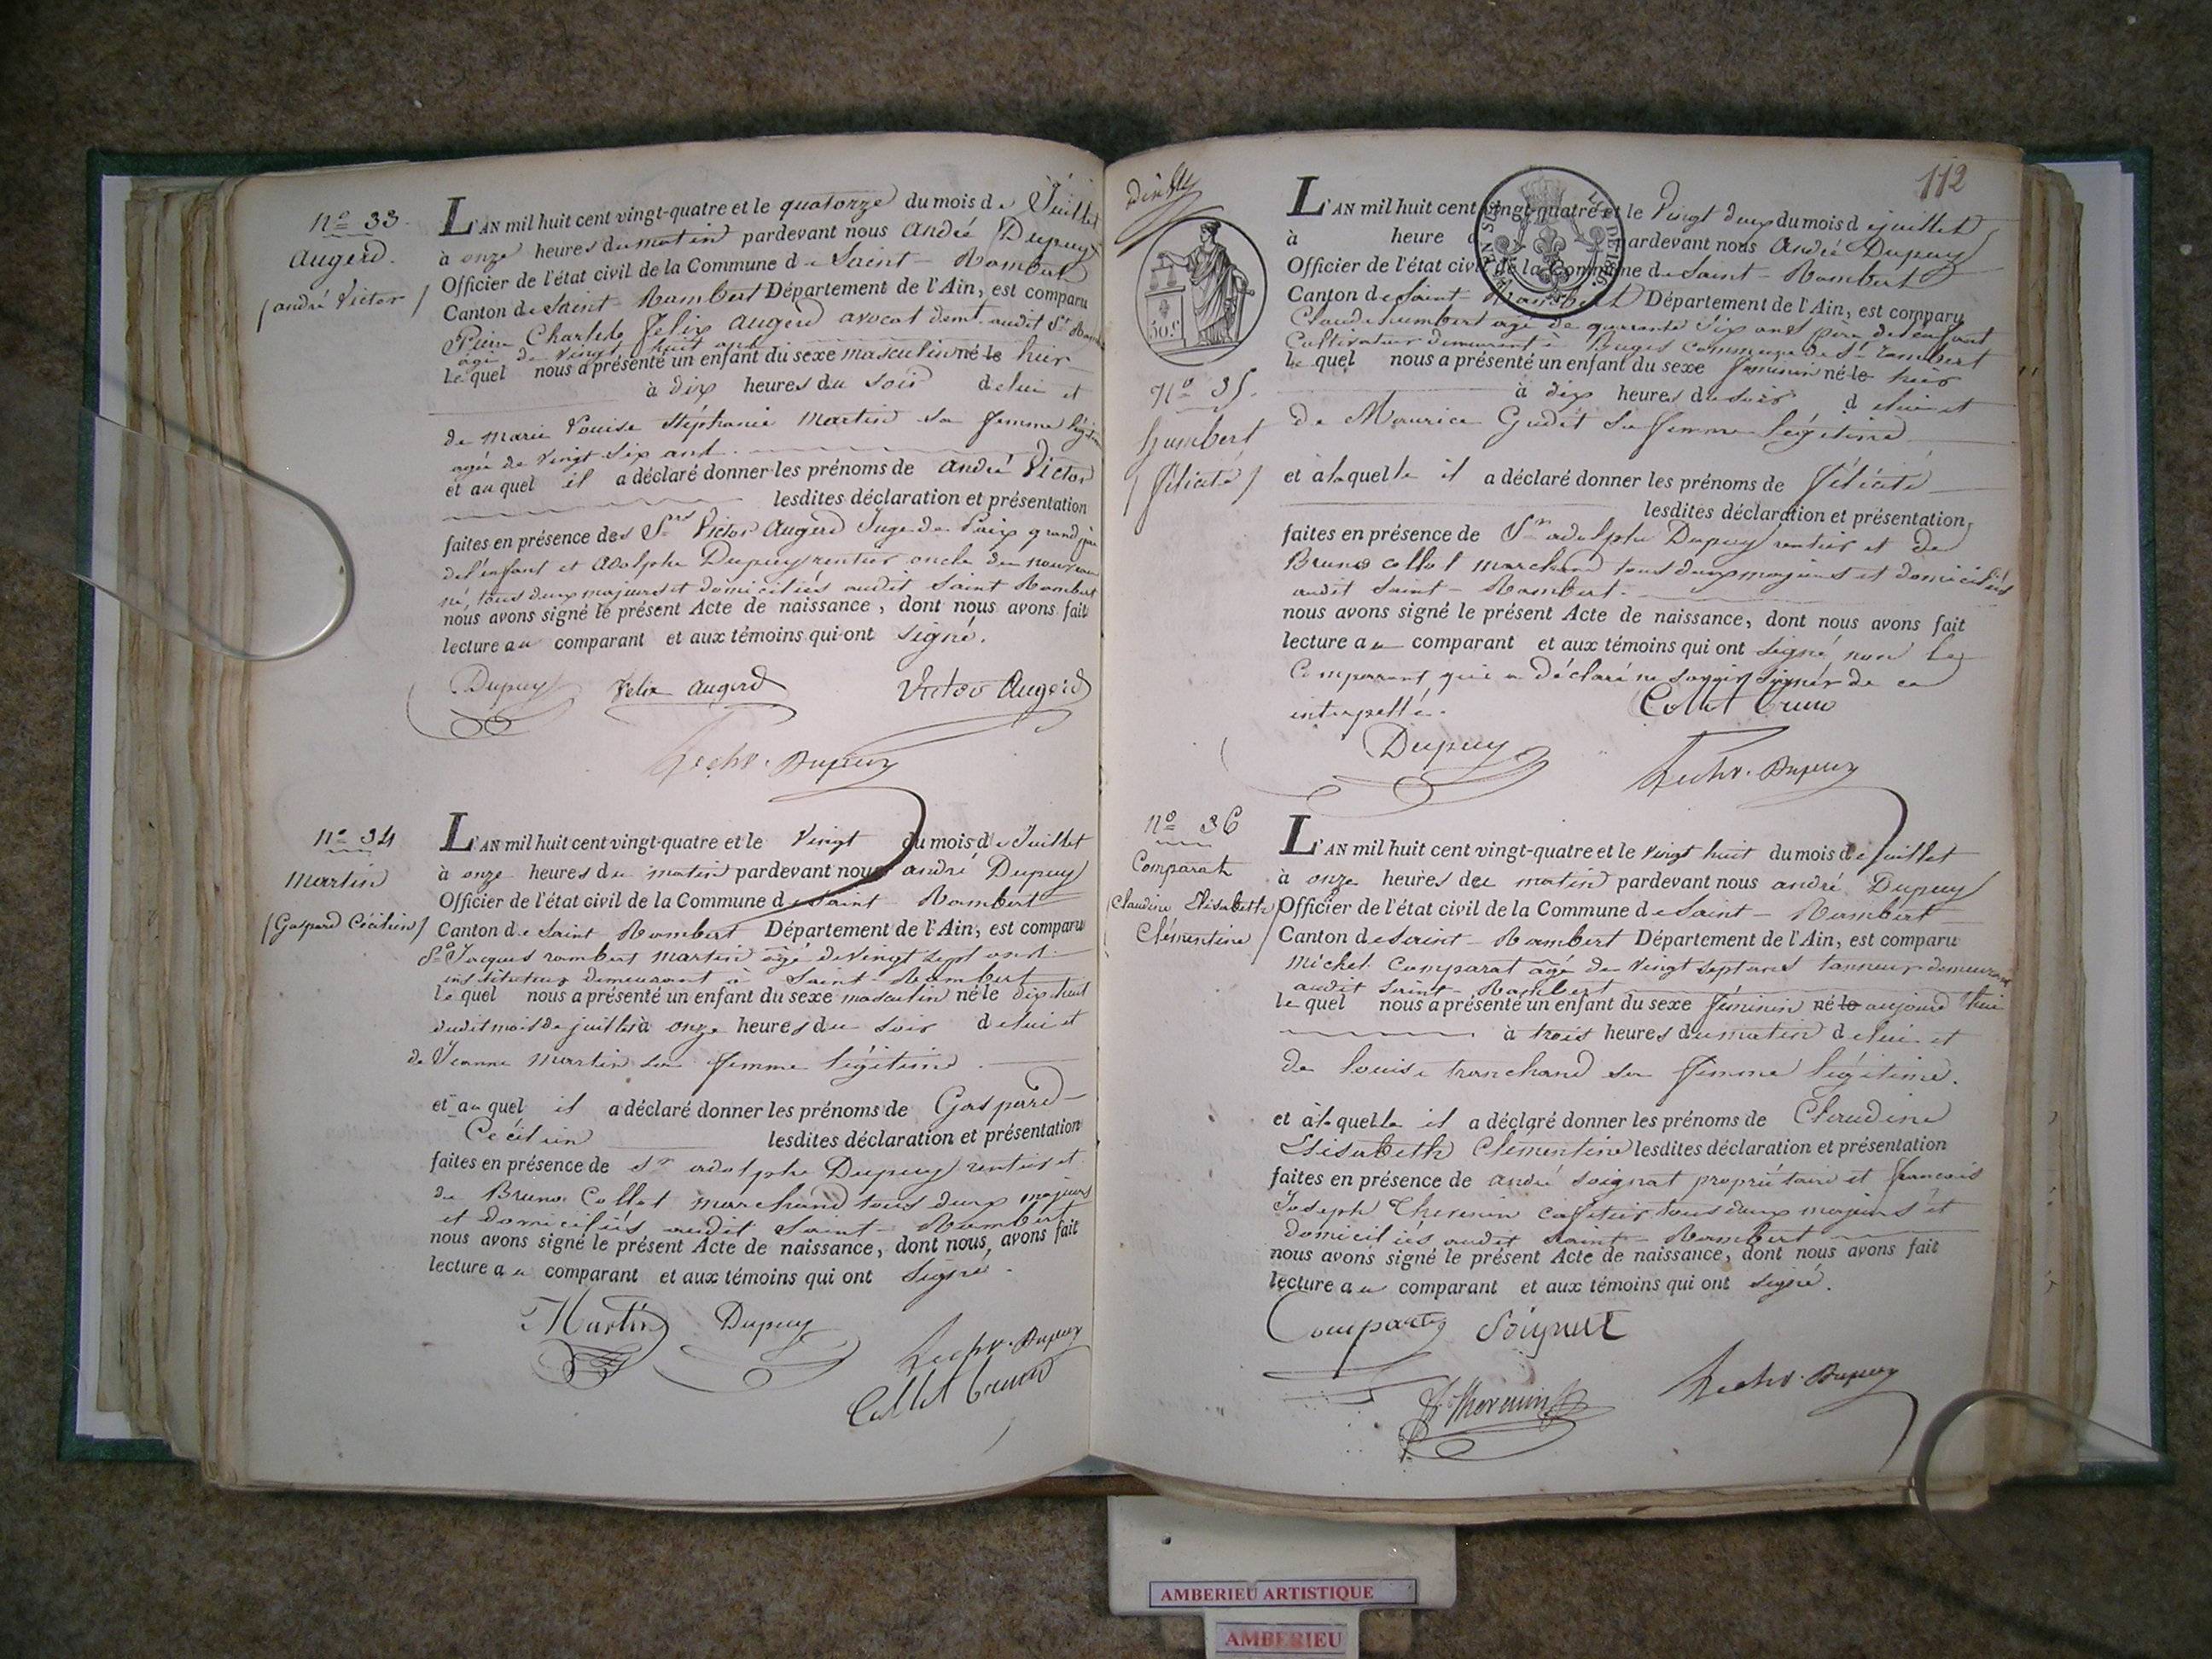 N° 33
Augerd
(andré Victor)
L'AN mil huit cent vingt-quatre et le quatorze du mois de Juillet
à onze heures du matin pardevant nous André Dupuy
Officier de l'état civil de la Commune de Saint-Rambert
Canton de Saint-Rambert Département de l'Ain, est comparu
Pierre Charles Felix Augerd avocat demt audit St Rambert
agé de vingt huit ans
le quel nous a présenté un enfant du sexe masculin né le hier
à dix heures du soir de lui et
de Marie Louise Stéphanie Martin sa femme légitime
agée de vingt six ans.
et au quel il a déclaré donner les prénoms de André Victor
lesdites déclaration et présentation
faites en présence des Srs Victor Augerd Juge de Paix grand père
de l'enfant et Adolphe Dupuy rentier oncle du nouveau
né, tous deux majeurs et domiciliés audit Saint Rambert
nous avons signé le présent Acte de naissance, dont nous avons fait
lecture au comparant et aux témoins qui ont signé.
Dupuy Felix Augerd Victor Augerd
Dupuy
N° 34
Martin
(Gaspard Cécilien)
L'AN mil huit cent vingt-quatre et le vingt du mois de Juillet
à onze heures du matin pardevant nous andré Dupuy
Officier de l'état civil de la Commune de Saint-Rambert
Canton de Saint-Rambert Département de l'Ain, est comparu
Sr Jacques rambert Martin agé de vingt sept ans
instituteur demeurant à Saint-Rambert
le quel nous a présenté un enfant du sexe masculin né le dix huit
dudit mois de juillet à onze heures du soir de lui et
de Jeanne Martin sa femme légitime.
et au quel il a déclaré donner les prénoms de Gaspard
Cécilien lesdites déclaration et présentation
faites en présence de Sr adolphe Dupuy rentier et
de Bruno Collot marchand tous deux majeurs
et domiciliés audit Saint-Rambert
nous avons signé le présent Acte de naissance, dont nous avons fait
lecture au comparant et aux témoins qui ont signé.
Martin Dupuy Dupuy
Collet bruno
112
30 c.
N° 35.
humbert
(félicité)
L'AN mil huit cent vingt-quatre et le vingt deux du mois de juillet
à heure d pardevant nous André Dupuy
Officier de l'état civil de la Commune de Saint-Rambert
Canton de Saint-Rambert Département de l'Ain, est comparu
Claude humbert agé de quarante six ans père de l'enfant
Cultivateur demeurant à Buges commune de St rambert
le quel nous a présenté un enfant du sexe féminin né le hier
à dix heures du soir de lui et
de Maurice Gudét sa femme légitime
et à laquelle il a déclaré donner les prénoms de félicité
lesdites déclaration et présentation
faites en présence de Sr adolphe Dupuy rentier et de
Bruno collot marchand tous deux majeurs et domiciliés
audit Saint-Rambert.
nous avons signé le présent Acte de naissance, dont nous avons fait
lecture au comparant et aux témoins qui ont signé non le
Comparant qui a déclaré ne savoir signer de ce
interpellé.
Collet bruno
Dupuy Dupuy
N° 36
Comparat
(Claudine Elisabeth
Clémentine)
L'AN mil huit cent vingt-quatre et le vingt huit du mois de juillet
à onze heures du matin pardevant nous andré Dupuy
Officier de l'état civil de la Commune de Saint-Rambert
Canton de Saint-Rambert Département de l'Ain, est comparu
Michel Comparat agé de vingt sept ans tanneur demeurant
audit Saint-Rambert
le quel nous a présenté un enfant du sexe féminin né le aujourd'hui
à trois heures du matin de lui et
de louise tranchand sa femme légitime.
et à laquelle il a déclaré donner les prénoms de Claudine
Elisabeth Clémentine lesdites déclaration et présentation
faites en présence de andré Soignat propriétaire et francois
Joseph Thevenin cafetier tous deux majeurs et
domiciliés audit Saint-Rambert
nous avons signé le présent Acte de naissance, dont nous avons fait
lecture au comparant et aux témoins qui ont signé.
Comparat Soignat
Thevenin Dupuy
AMBERIEU ARTISTIQUE
AMBERIEU